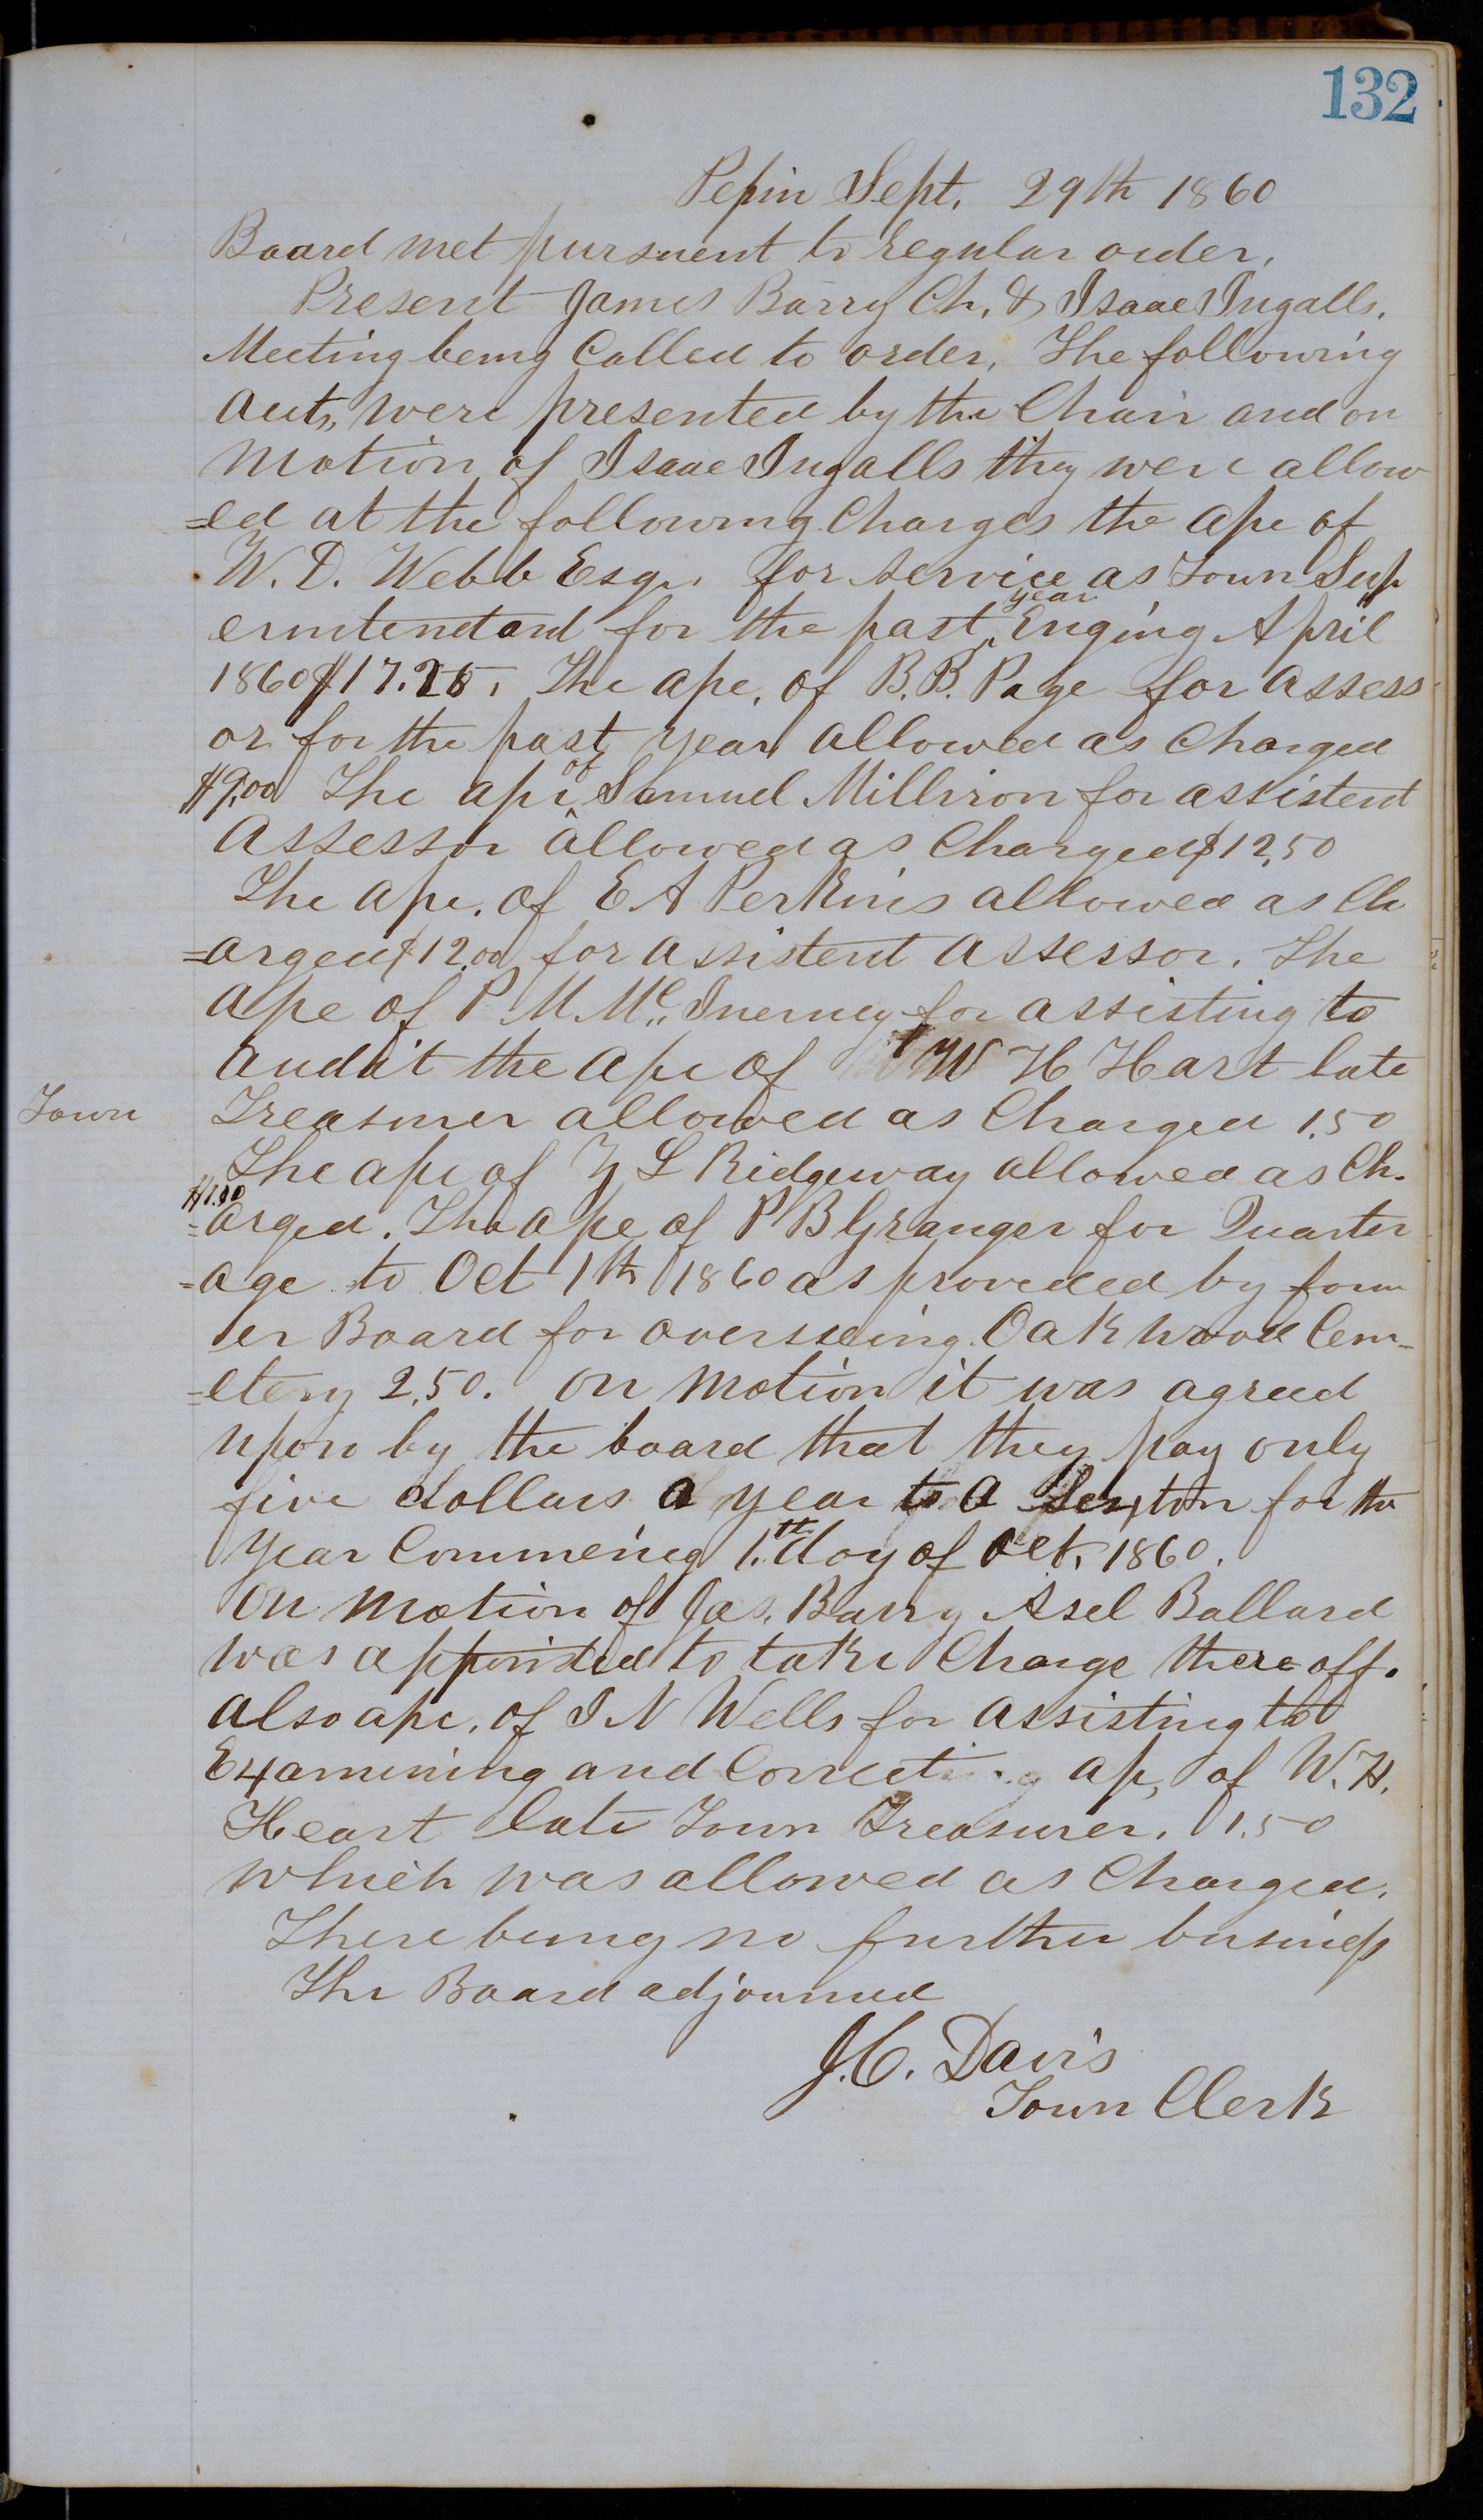 132
Pepin Sept. 29th 1860
Board met pursuent to regular order,
Present James Barry Ch. & Isaac Ingalls.
Meeting being Called to order, The following
acts, were presented by the Chair and on
Motion of Isaac Ingalls they were allow
=ed at the following Charges the apc of
W. D. Webb Esqr. for service as Town Sup
erintendand for the past ^year Enging April
1860 $17.25. The apc. of B. B. Page for assess
or for the past year allowed as Charged
$9.00 The apc ^of Samuel Milliron for assistent
Assessor allowed as Charged $12,50
The apc. of E A Perkins allowed as Ch
=arged $12.00 for assistent assessor. The
apc of P. M. Mc. Inerney for assisting to
audit the apc of W H Hart late
Town Treasurer allowed as Charged 1.50
The apc of L Ridgeway allowed as Ch.
$1.00
=arged. The apc of P B Granger for Quarter
=age to Oct 1th 1860 as provided by form
er Board for overseeing Oak wood Cem-
=etery 2,50. On motion it was agreed
upon by the board that they pay only
five dollars a year to a Sexton for the
Year Commencing 1.th day of Oct. 1860.
On motion of Jas. Barry Asel Ballard
was appointed to take Charge there off.
also apc. of I N Wells for assisting to
Examining and Correcting ap, of W. H.
Heart late Town Treasurer. 1.50
which was allowed as Charged.
There being no further business
The Board adjourned
J. C. Davis
Town Clerk